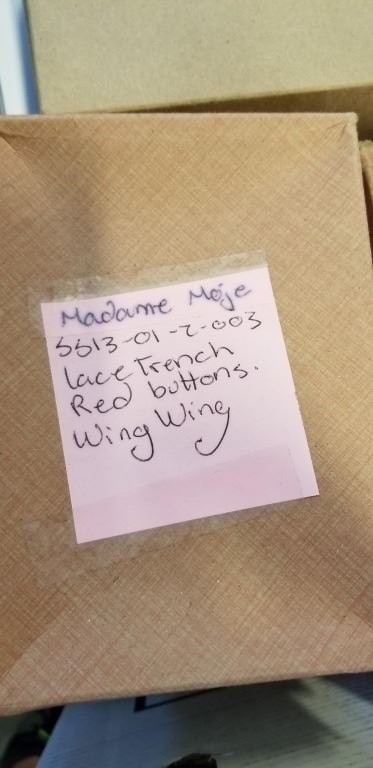 Madame Moje
SS13-01-2-003
lace Trench
Red buttons.
Wing Wing